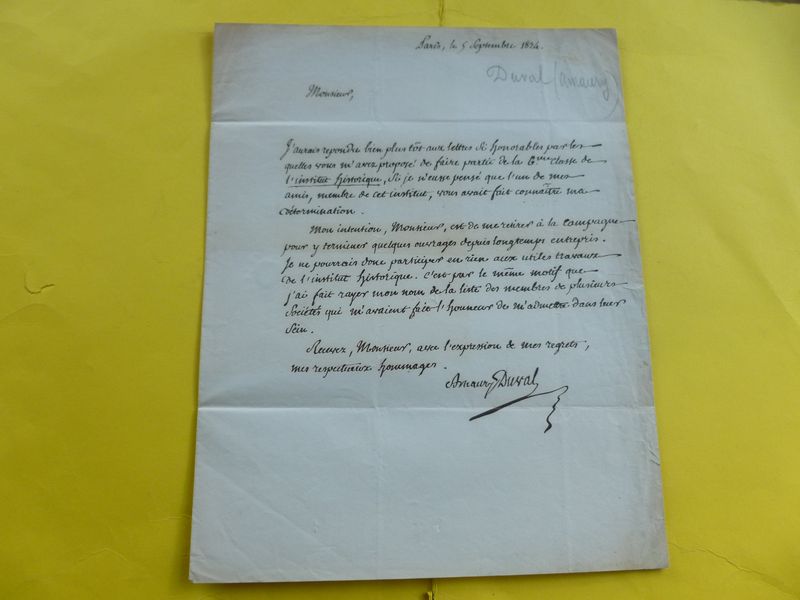 Paris, le 5 Septembre 1834.
Duval (Amaury)
Monsieur,
J'aurais repondu bien plus tôt aux lettres si honorables par les-
quelles vous m'avez proposé de faire partie de la 6me classe de
l'institut historique, si je n'eusse pensé que l'un de mes
amis, membre de cet institut, vous avait fait connaître ma
détermination.
Mon intention, Monsieur, est de me retirer à la campagne
pour y terminer quelques ouvrages depuis longtemps entrepris.
Je ne pourrais donc participer en rien aux utiles travaux
de l'institut historique. C'est par le même motif que
j'ai fait rayer mon nom de la liste des membres de plusieurs
Sociétés qui m'avaient fait l'honneur de m'admettre dans leur
Sein.
Recevez, Monsieur, avec l'expression de mes regrets,
mes respectueux hommages.
Amaury Duval